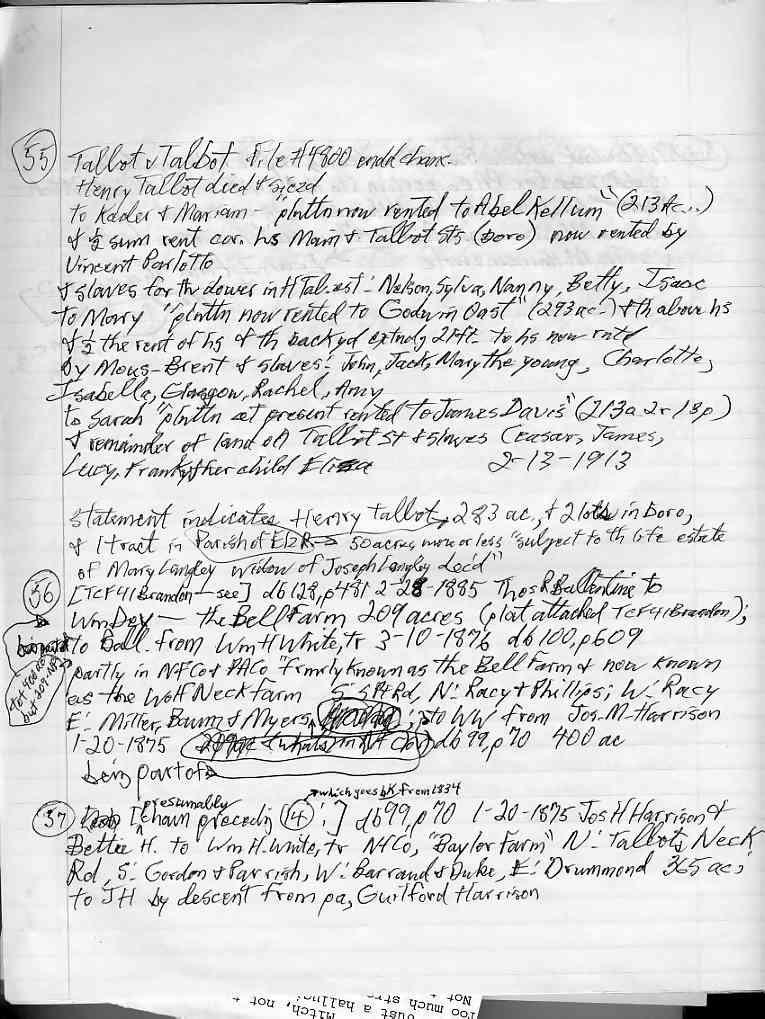 55 Talbot v Talbot File #4800 endd chanc.
Henry Talbot died & siezd
to Kader & Mariam - "plnttn now rented to Abel Kellum" (213 Ac...)
& ½ sum rent cor. hs Main & Talbot Sts (boro) now rented by
Vincent Parlotto
& slaves for thr dower in H Tal. est: Nelson, Sylva, Nanny, Betty, Isaac
to Mary "plnttn now rented to Godwin Oast" (293 ac.) & th above hs
& ½ the rent of hs & th backyd extndg 21 ft. to hs now rntd
by Mous-Brent & slaves: John, Jack, Mary the young, Charlotte,
Isabella, Glasgow, Rachel, Amy
to Sarah "plnttn at present rented to James Davis" (213a 2r 18p)
& remainder of land on Talbot St & slaves Ceasar, James,
Lucy, Franky & her child Eliza 2-13-1913
Statement indicates Henry Talbot, 283 ac., & 2 lots in boro,
& 1 tract in Parish of ElzR 50 acres more or less "subject to th life estate
of Mary Langley widow of Joseph Langley dec'd"
56 [TCF41 Brandon - see] db 128, p481 2-28-1885 Thos R Ballentine to
Wm Dey - the Bell Farm 209 acres (plat attached TCF41 Brandon);
to Ball. from Wm H White, tr 3-10-1876 db 100, p609
tot 400 ac but 209 NF
partly in NFCo & PACo "frmrly known as the Bell Farm & now known
as the Wolf Neck Farm S: Pt Rd, N: Racy & Phillips; W: Racy
E: Miller, Baum & Myers ; to WW from Jos. M. Harrison
1-20-1875 db 99, p70 400 ac
being part of
which goes bk from 1834
57 [presumably chain precedig 14:] db 99, p70 1-20-1875 Jos H Harrison &
Bettie H. to Wm H. White, tr NfCo, "Baylor Farm" N: Talbots Neck
Rd, S: Gordon & Parrish, W: Barrand & Duke, E: Drummond 365 ac;
to JH by descent from pa, Guilford Harrison
Mitch, not t
ust a halluci
Too much stre
Not t